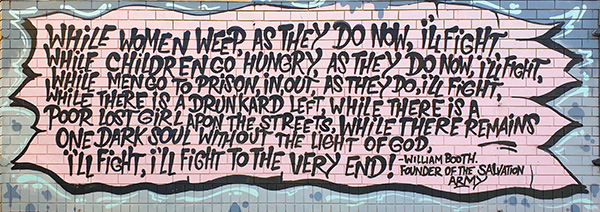 WHILE WOMEN WEEP, AS THEY DO NOW, i'll FiGHT
WHILE CHILDREN GO HUNGRY AS THEY DO NOW, i'll FiGHT,
WHILE MEN GO TO PRiSON, iN, OUT, AS THEY DO, i'll FiGHT,
WHILE THERE iS A DRUNKARD LEFT, WHILE THERE iS A
POOR LOST GiRL APON THE STREETS, WHILE THERE REMAiNS
ONE DARK SOUL WiTHOUT THE LiGHT OF GOD,
i'll FiGHT, i'll FiGHT TO THE VERY END! -WiLLiAM BOOTH.
FOUNDER OF THE SALVATiON
ARMY